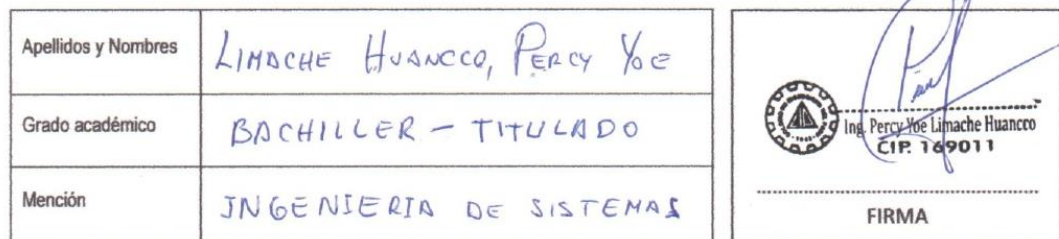 Apellidos y Nombres
LIMACHE HUANCCO, PERCY YOE
Grado académico
BACHILLER - TITULADO
Mención
INGENIERIA DE SISTEMAS
Ing. Percy Yoe Limache Huancco
CIP. 169011
FIRMA